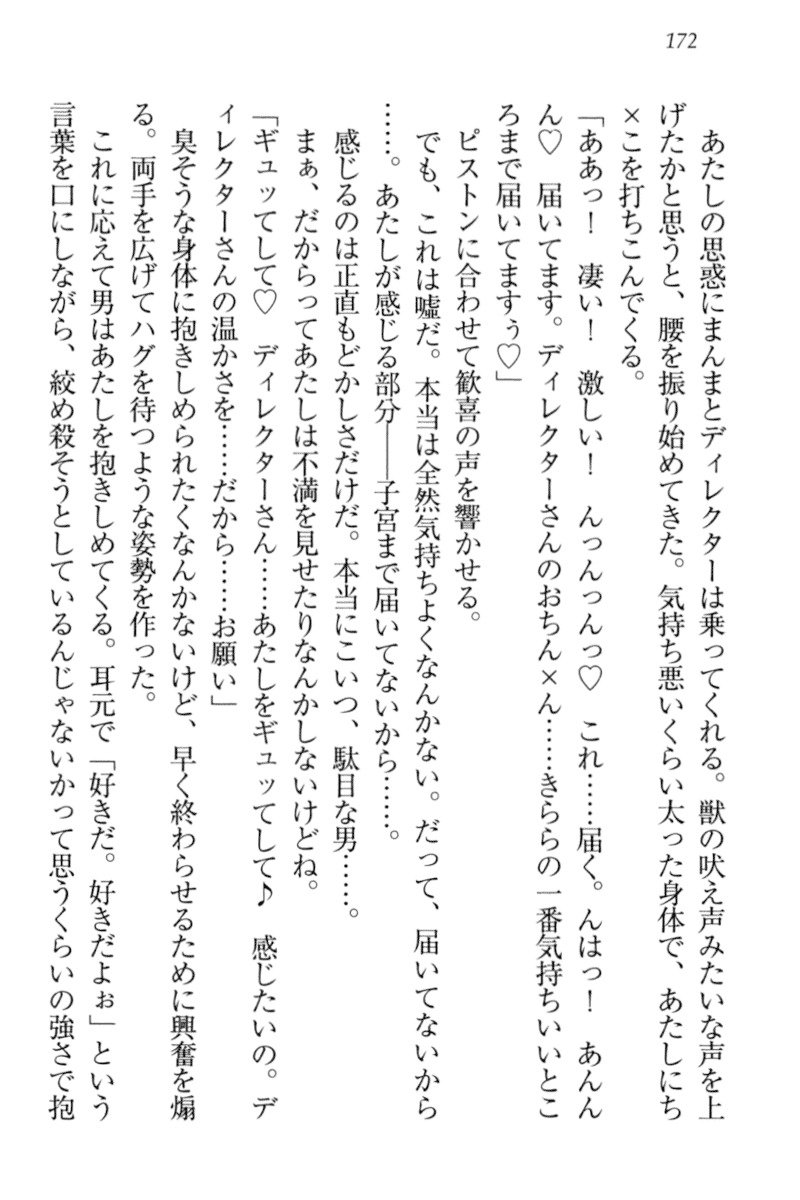 172
あたしの思惑にまんまとディレクターは乗ってくれる。獣の吠え声みたいな声を上
げたかと思うと、腰を振り始めてきた。気持ち悪いくらい太った身体で、あたしにち
×こを打ちこんでくる。
「ああっ！　凄い！　激しい！　んっんっんっ♡　これ……届く。んはっ！　あんん
ん♡　届いてます。ディレクターさんのおちん×ん……きららの一番気持ちいいとこ
ろまで届いてますぅ♡」
ピストンに合わせて歓喜の声を響かせる。
でも、これは嘘だ。本当は全然気持ちよくなんかない。だって、届いてないから
……。あたしが感じる部分――子宮まで届いてないから……。
感じるのは正直もどかしさだけだ。本当にこいつ、駄目な男……。
まぁ、だからってあたしは不満を見せたりなんかしないけどね。
「ギュッてして♡　ディレクターさん……あたしをギュッてして♪　感じたいの。デ
ィレクターさんの温かさを……だから……お願い」
臭そうな身体に抱きしめられたくなんかないけど、早く終わらせるために興奮を煽
る。両手を広げてハグを待つような姿勢を作った。
これに応えて男はあたしを抱きしめてくる。耳元で「好きだ。好きだよぉ」という
言葉を口にしながら、絞め殺そうとしているんじゃないかって思うくらいの強さで抱